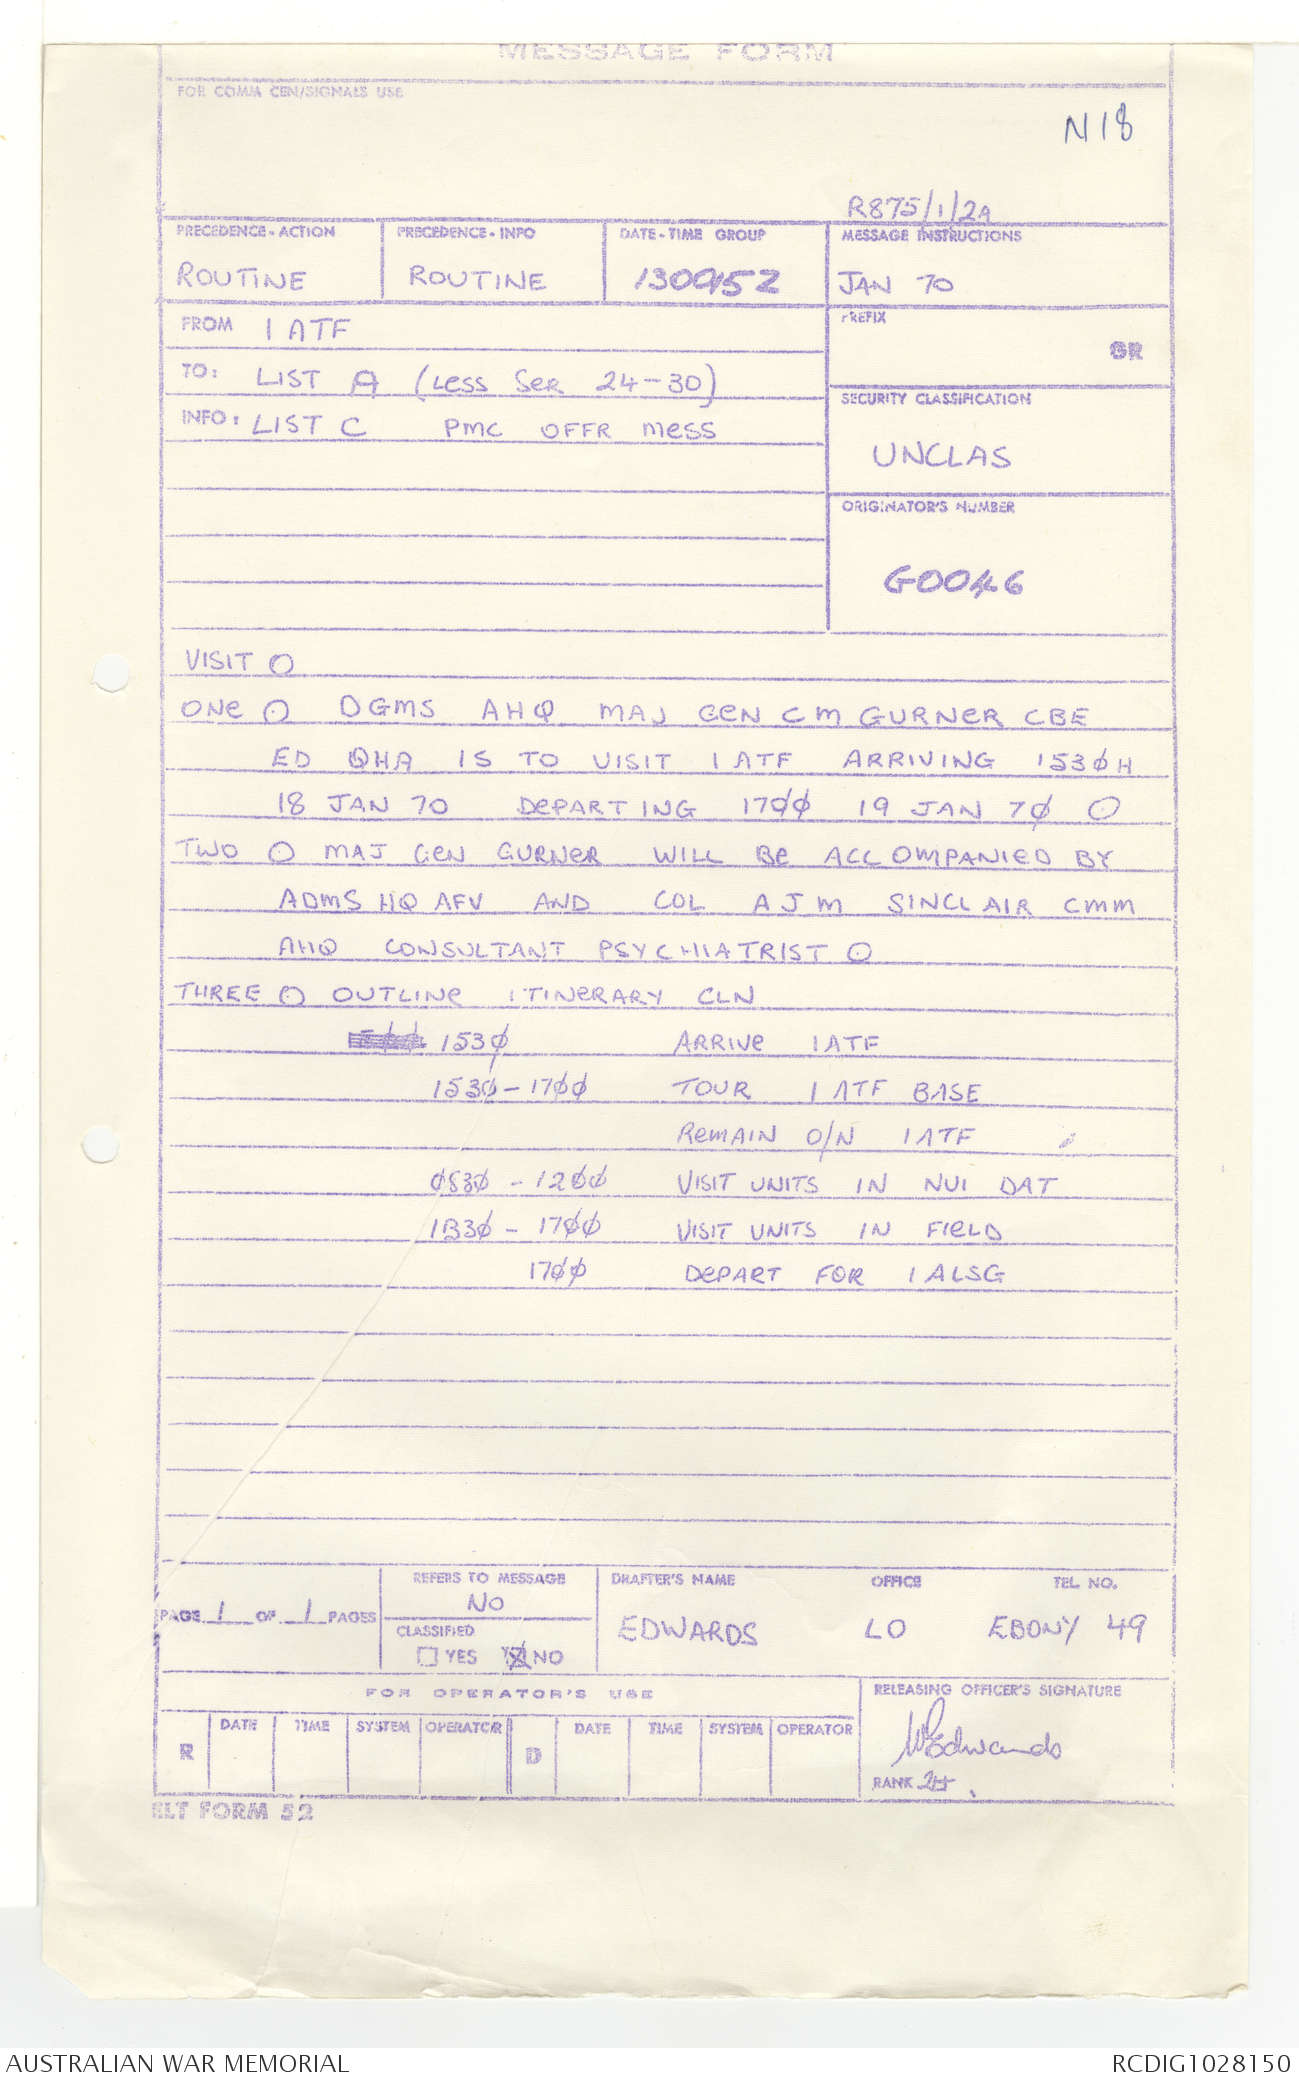 MESSAGE FORM
FOR COMM CEN/SIGNALS USE
N18
R875/1/2A
PRECEDENCE - ACTION PRECEDENCE - INFO DATE - TIME GROUP MESSAGE INSTRUCTIONS
ROUTINE ROUTINE 130915Z JAN 70
FROM 1 ATF
PREFIX
GR
TO: LIST A (LESS SER 24-30)
SECURITY CLASSIFICATION
INFO: LIST C PMC OFFR MESS
UNCLAS
ORIGINATOR'S NUMBER
G0046
VISIT O
ONE O DGMS AHQ MAJ GEN CM GURNER CBE
ED QHA IS TO VISIT 1 ATF ARRIVING 153ØH
18 JAN 70 DEPARTING 17ØØ 19 JAN 7Ø O
TWO O MAJ GEN GURNER WILL BE ACCOMPANIED BY
ADMS HQ AFV AND COL A J M SINCLAIR CMM
AHQ CONSULTANT PSYCHIATRIST O
THREE O OUTLINE ITINERARY CLN
153Ø ARRIVE 1ATF
153Ø - 17ØØ TOUR 1 ATF BASE
REMAIN O/N 1 ATF
Ø83Ø - 12ØØ VISIT UNITS IN NUI DAT
133Ø - 17ØØ VISIT UNITS IN FIELD
17ØØ DEPART FOR 1 ALSG
PAGE 1 OF 1 PAGES
REFERS TO MESSAGE
NO
CLASSIFIED
YES NO
DRAFTER'S NAME OFFICE TEL NO.
EDWARDS LO EBONY 49
FOR OPERATOR'S USE
RELEASING OFFICER'S SIGNATURE
R DATE TIME SYSTEM OPERATOR D DATE TIME SYSTEM OPERATOR
WEdwards
RANK
ELT FORM 52
AUSTRALIAN WAR MEMORIAL RCDIG1028150